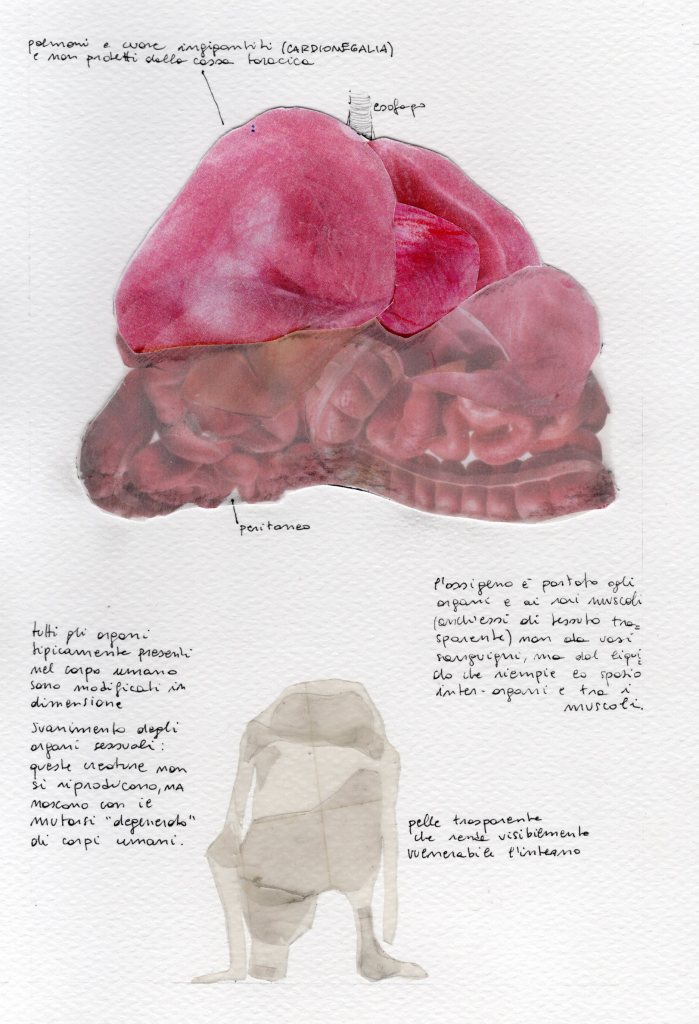 polmoni e cuore ingigantiti (CARDIOMEGALIA)
e non protetti dalla cassa toracica
esofago
peritoneo
l'ossigeno è portato agli
organi e ai rari muscoli
(anch'essi di tessuto tra=
sparente) non da vasi
sanguigni, ma dal liqui=
do che riempie lo spazio
inter-organi e tra i
muscoli.
tutti gli organi
tipicamente presenti
nel corpo umano
sono modificati in
dimensione
svanimento degli
organi sessuali:
queste creature non
si riproducono, MA
nascono con il
mutarsi "degenerato"
di corpi umani.
pelle trasparente
che rende visibilmente
vulnerabile l'interno